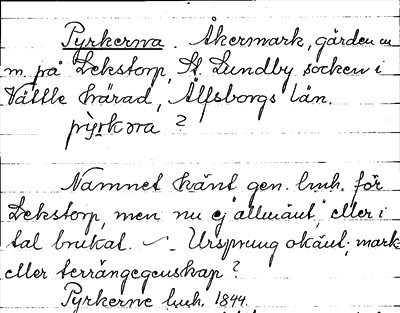 Pyrkerna. Åkermark, gården
m. på Lekstorp, St. Lundby socken i
Vättle härad, Älfsborgs län.
Namnet känt gen. bruk. för
Lekstorp, men nu ej "allmänt", eller i
tal brukat. Ursprung okänt; mark
eller terrängegenskap?
Pyrkerne bruk. 1844.